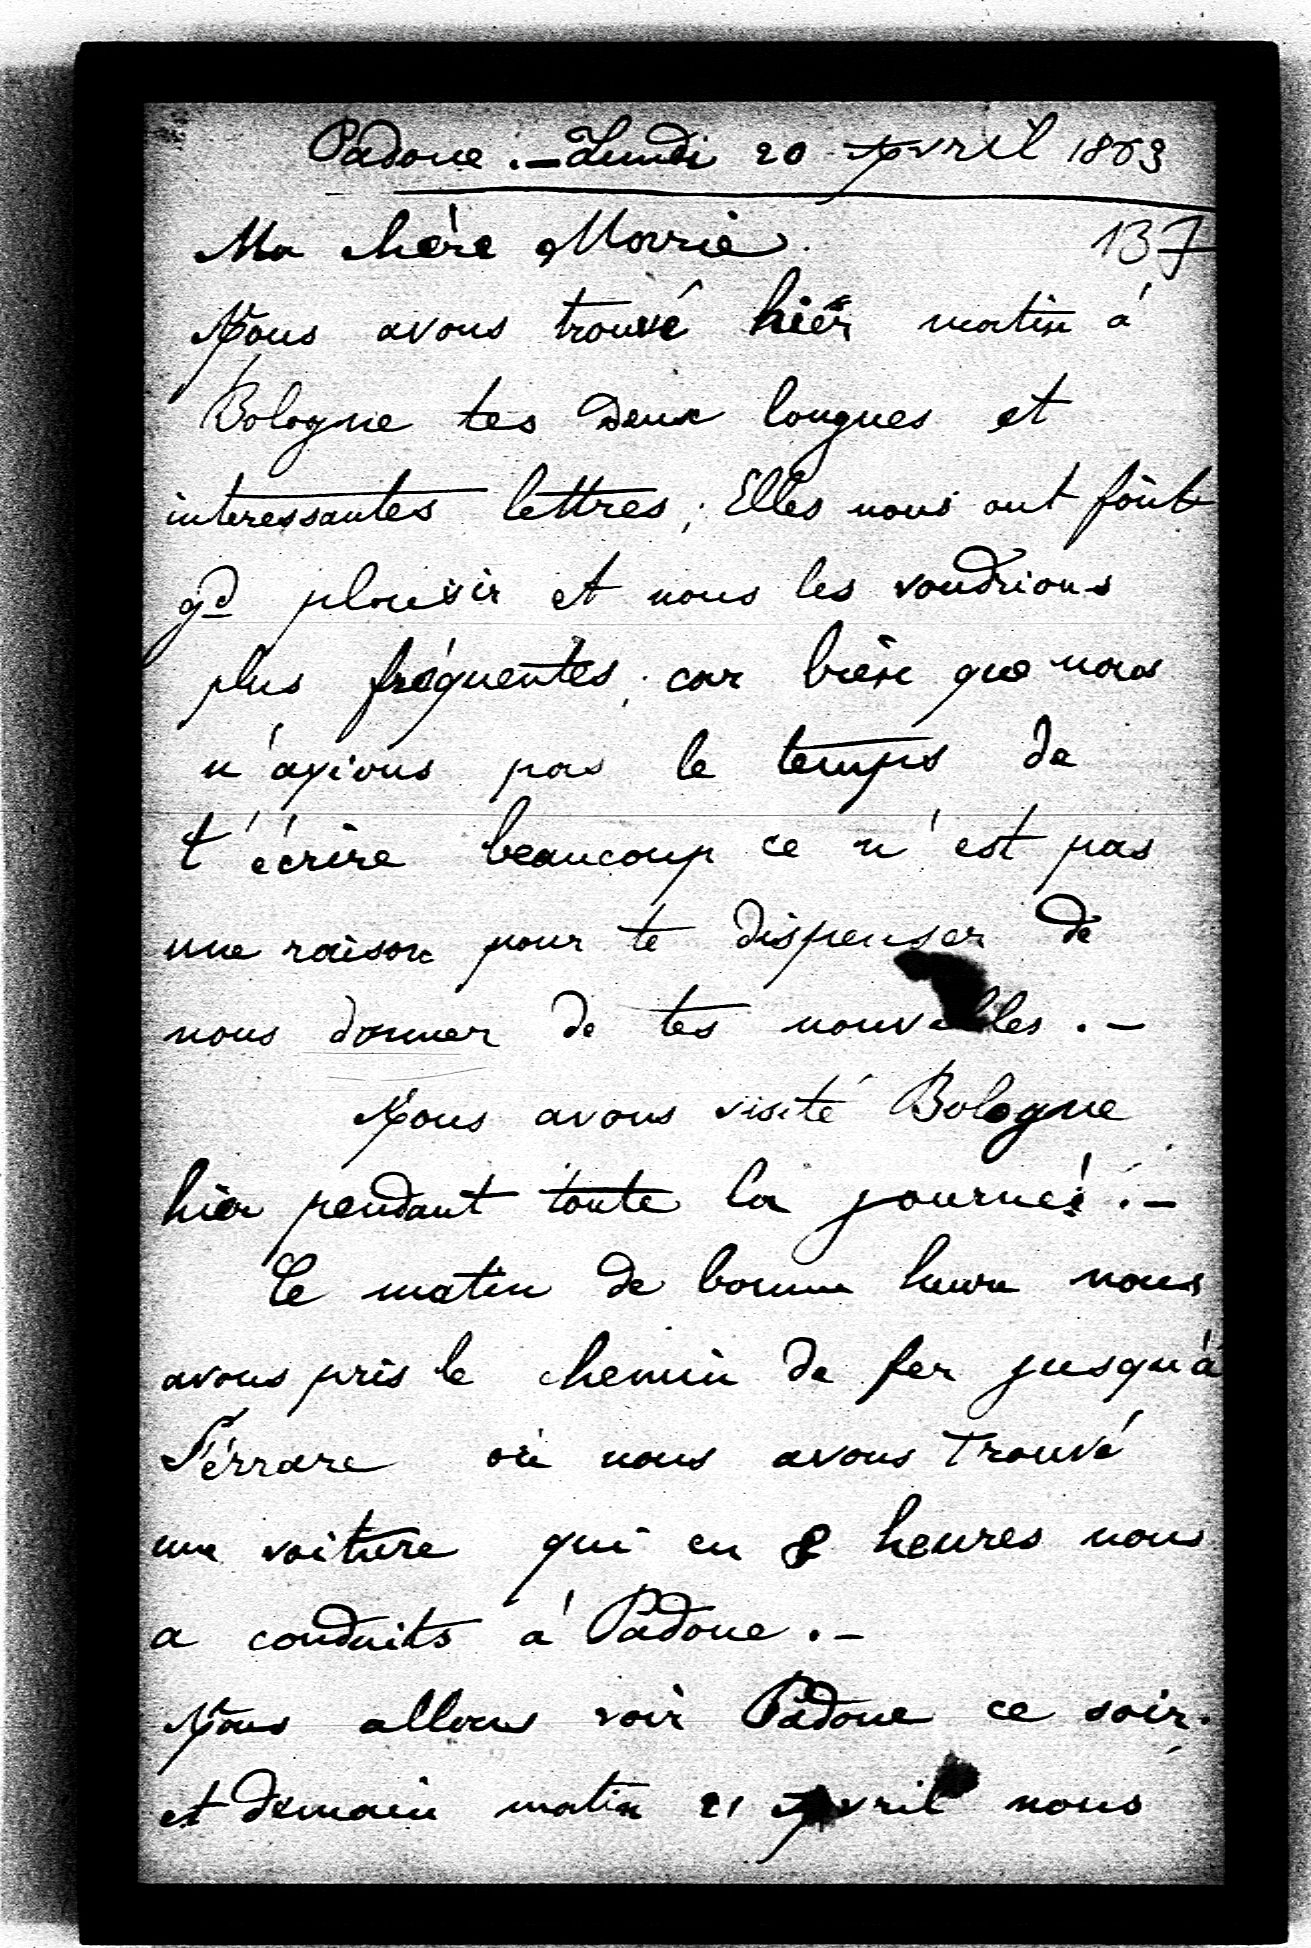 Padoue. – Lundi 20 Avril 1863
137
Ma chère Marie.
Nous avons trouvé hier matin à
Bologne tes deux longues et
interessantes lettres; Elles nous ont fait
gd plaisir et nous les voudrions
plus fréquentes, car bien que nous
n'ayions pas le temps de
t'écrire beaucoup ce n'est pas
une raison pour te dispenser de
nous donner de tes nouvelles. –
Nous avons visité Bologne
hier pendant toute la journée. –
Ce matin de bonne heure nous
avons pris le chemin de fer jusqu'à
Férrare où nous avons trouvé
une voiture qui en 8 heures nous
a conduits à Padoue. –
Nous allons voir Padoue ce soir.
et demain matin 21 Avril nous